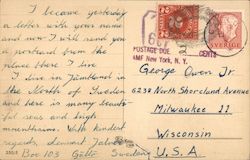 I became yesterday
a letter with your name
and now I will send you
a postcard from the
place there I live
I live in Jämtland in
the North of Sweden
and here is many beauti-
ful seas and high
mountains. With kindest
regards,
Box 103 Sweden
POSTAGE DUE
CENTS
AMF New York, N. Y.
SVERIGE
George Owen Jr.
6238 North Shoreland Avenue
Milwaukee 11
Wisconsin
U.S.A